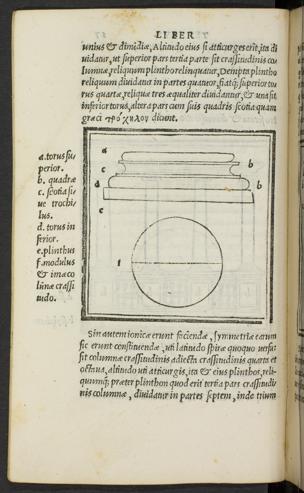 LIBER
unius & dimidiæ, Altitudo eius si atticurges erit, ita di
uidatur, ut superior pars tertia parte sit crassitudinis co
lumnæ, reliquum plintho relinquatur, Dempta plintho
reliquum diuidatur in partes quatuor, fiatq́; superior to
rus quartæ, reliquæ tres æqualiter diuidantur, & una sit
inferior torus, altera pars cum suis quadris scotia quam
græci τρόχηλον dicunt.
a. torus su
perior.
b. quadræ
c. scotia si
ue trochi,
lus.
d. torus in
ferior.
e. plinthus
f. modulus
& ima co
lũnæ crassi
tudo.
a
c
b
d
b
e
f
Sin autem ionicæ erunt faciendæ, symmetriæ earum
sic erunt constituendæ, uti latitudo spiræ quoquo uersũ
sit columnæ crassitudinis adiecta crassitudinis quarta et
octaua, altitudo uti atticurgis, ita & eius plinthos, reli-
quumq́; præter plinthon quod erit tertia pars crassitudi
nis columnæ, diuidatur in partes septem, inde trium